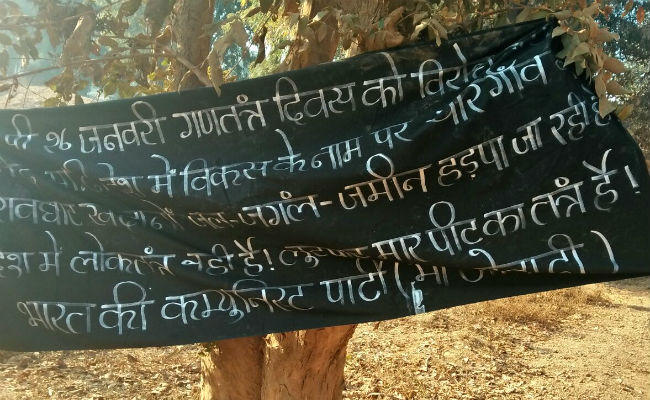 की २६ जनवरी गणतंत्र दिवस को विरोध
में विकास के नाम पर चारगांव
जल-जगंल-जमीन हड़पा जा रही है
में लोकतंत्र नही है! लुटपाट मार पीट का तंत्र है!
भारत की कम्युनिस्ट पार्टी (माओवादी)